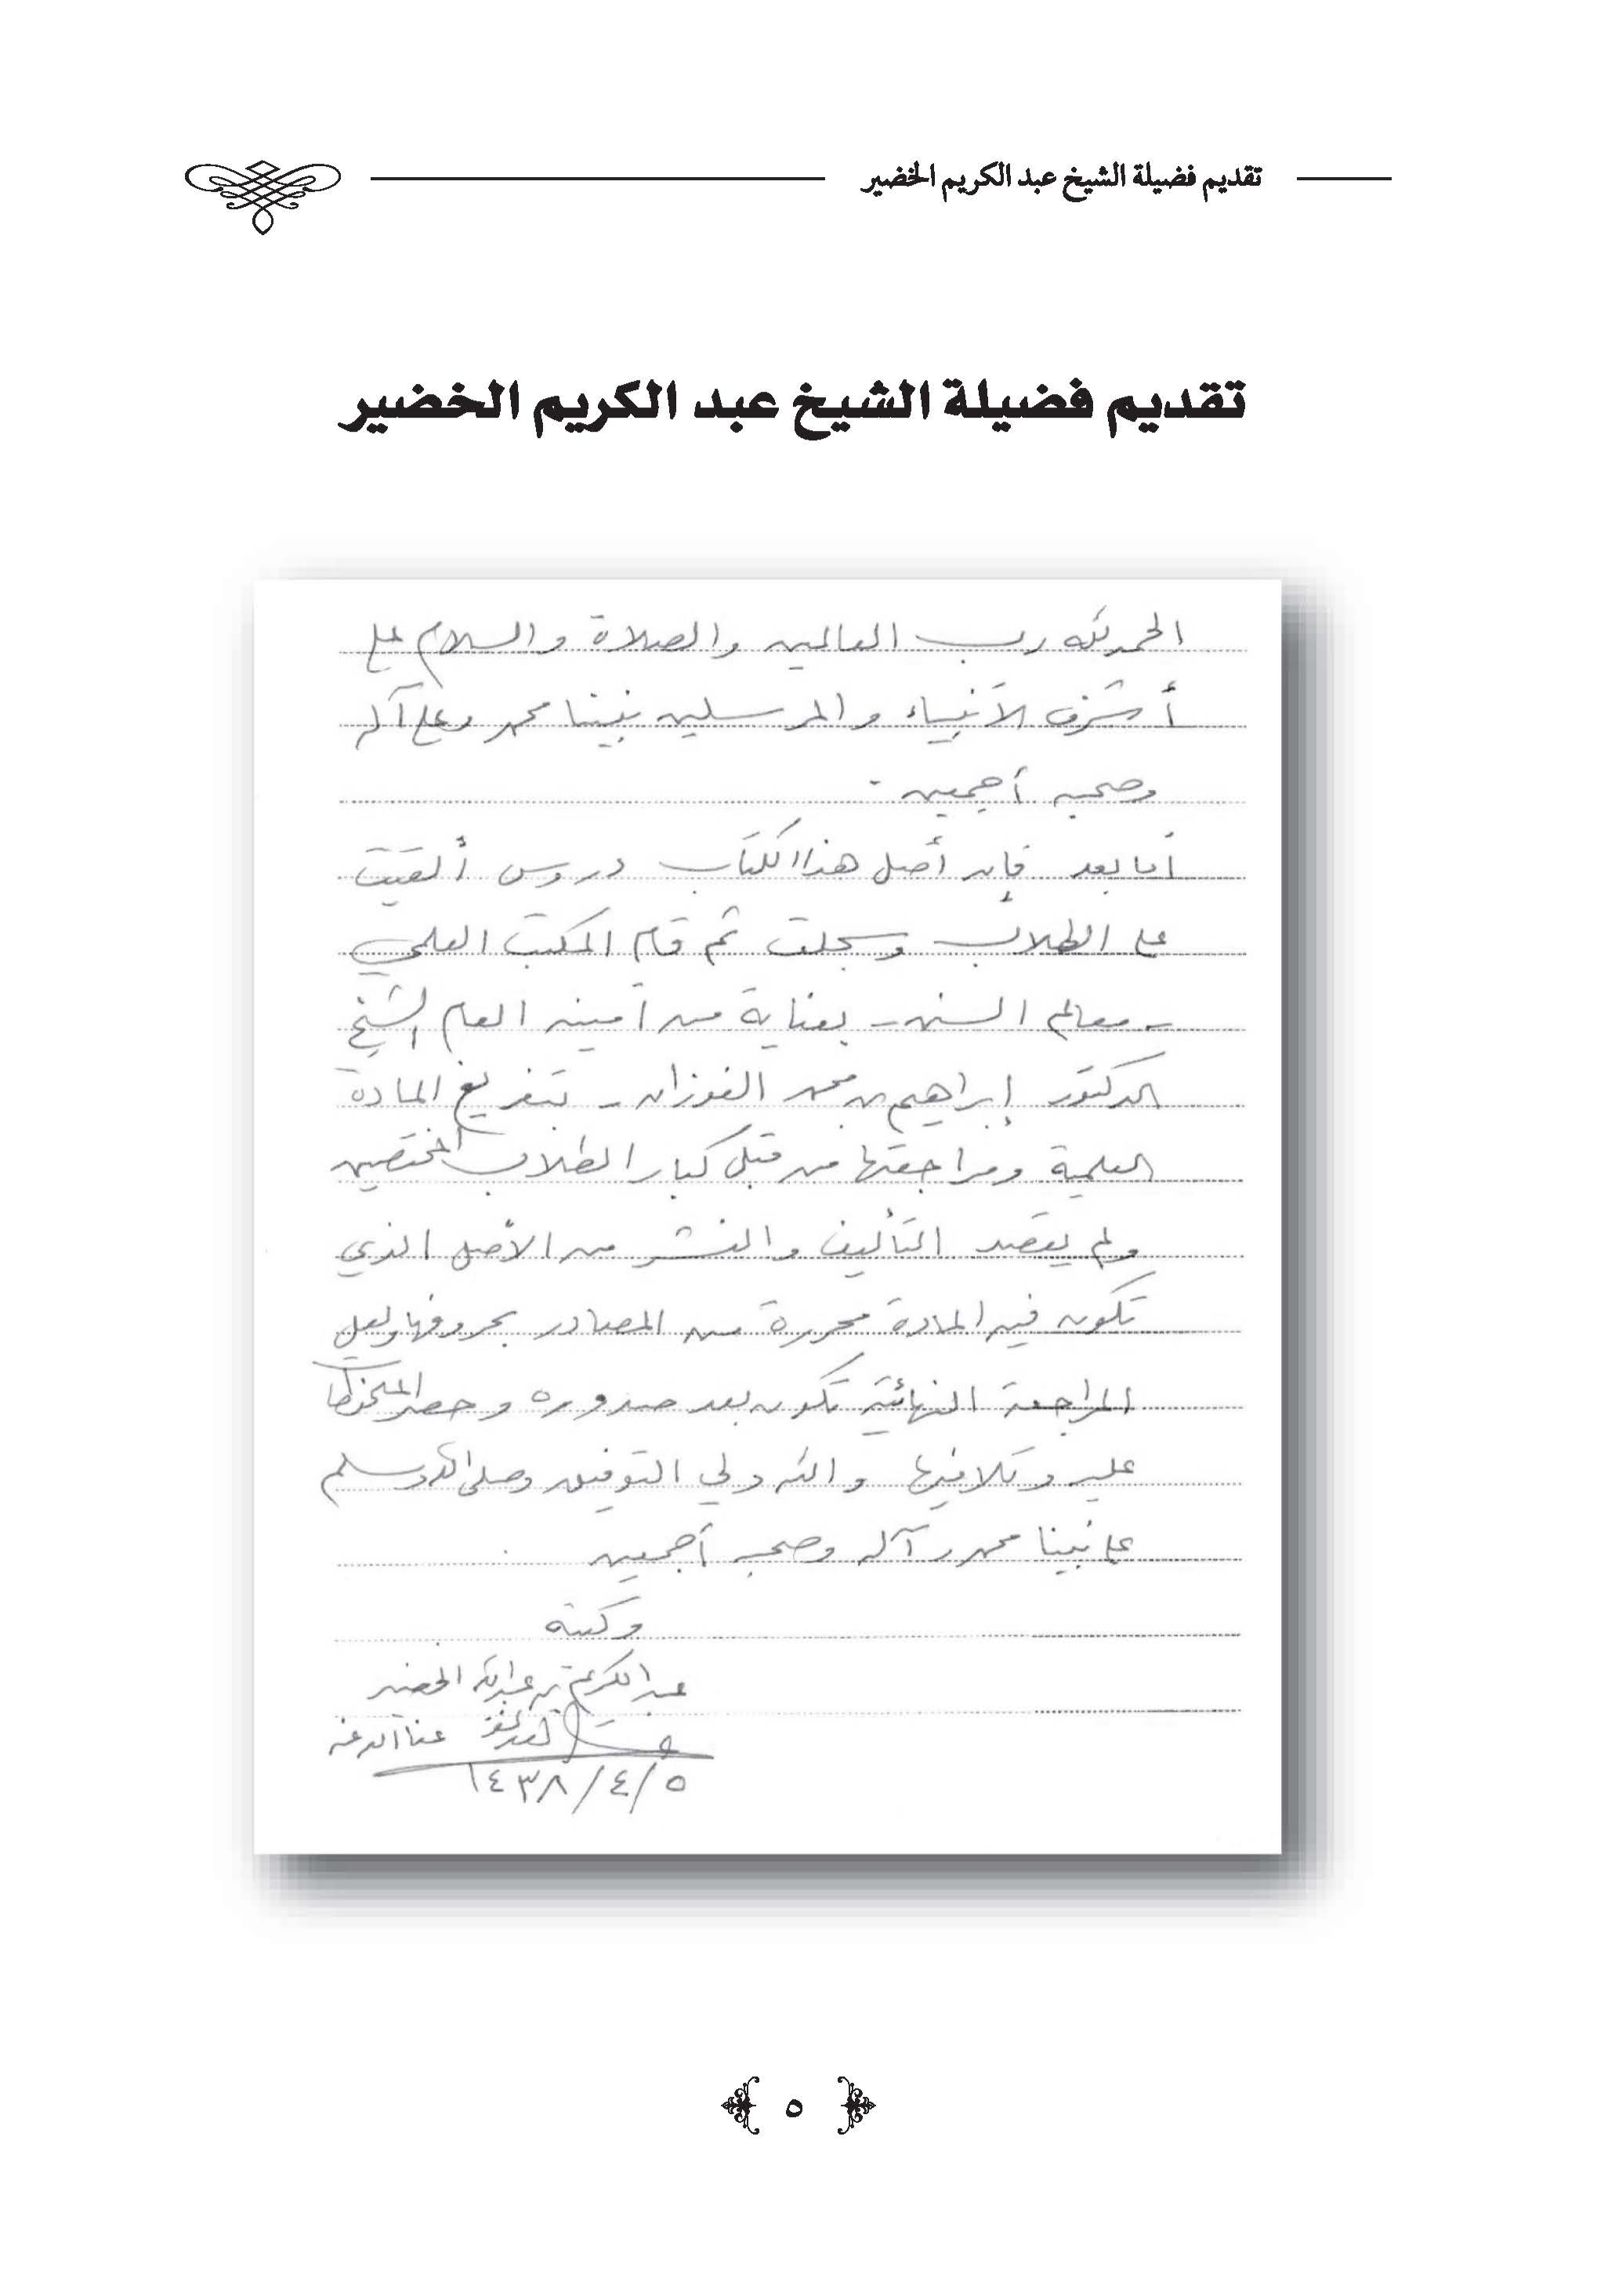 تقديم فضيلة الشيخ عبد الكريم الخضير
تقديم فضيلة الشيخ عبد الكريم الخضير
الحمد لله رب العالمين والصلاة والسلام على
أشرف الأنبياء والمرسلين نبينا محمد وعلى آله
وصحبه أجمعين .
أما بعد فإن أصل هذا الكتاب دروس ألقيت
على الطلاب وسجلت ثم قام المكتب العلمي
- معالم السنن - بعناية من أمينه العام الشيخ
الدكتور إبراهيم بن محمد الفوزان - بتفريغ المادة
العلمية ومراجعتها من قبل كبار الطلاب المختصين
ولم يقصد التأليف والنشر من الأصل الذي
تكون فيه المادة محررة من المصادر بحروفها ولعل
المراجعة النهائية تكون بعد صدوره وحصر الملحوظات
عليه وتلافيها والله ولي التوفيق وصلى الله وسلم
على نبينا محمد وآله وصحبه أجمعين
وكتبه
عبد الكريم بن عبدالله الخضير
عفا الله عنه
١٤٣٨/٤/٥
٥